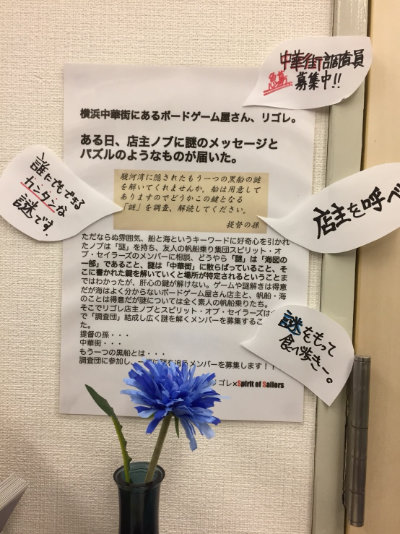 中華街調査員
募集中!!
横浜中華街にあるボードゲーム屋さん、リゴレ。
ある日、店主ノブに謎のメッセージと
パズルのようなものが届いた。
駿河湾に隠されたもう一つの黒船の鍵
を解いてくれませんか。船は用意して
ありますのでどうかこの鍵となる
「謎」を調査、解読してください。
提督の孫
誰にでもできる
カンタンな
謎です。
店主を呼べ
ただならぬ雰囲気、船と海というキーワードに好奇心を引かれ
たノブは「謎」を持ち、友人の帆船乗り集団スピリット・オ
ブ・セイラーズのメンバーに相談、どうやら「謎」は「海図の
一部」であること、謎は「中華街」に散らばっていること、そ
こに書かれた鍵を解いていくと場所が特定されるということま
ではわかったが、肝心の鍵が解けない。ゲームや謎解きは得意
だが海はよく分からないボードゲーム屋さん店主と、帆船・海
のことは得意だが謎については全く素人の帆船乗りたち。
そこでリゴレ店主ノブとスピリット・オブ・セイラーズは
で「調査団」結成し広く謎を解くメンバーを募集するこ
た。
提督の孫・・・
中華街・・・
もう一つの黒船とは・・・
調査団に参加し
謎を追うメンバーを募集します!!
ゴレ×Spirit of Sailors
謎をもって
食べ歩きー。